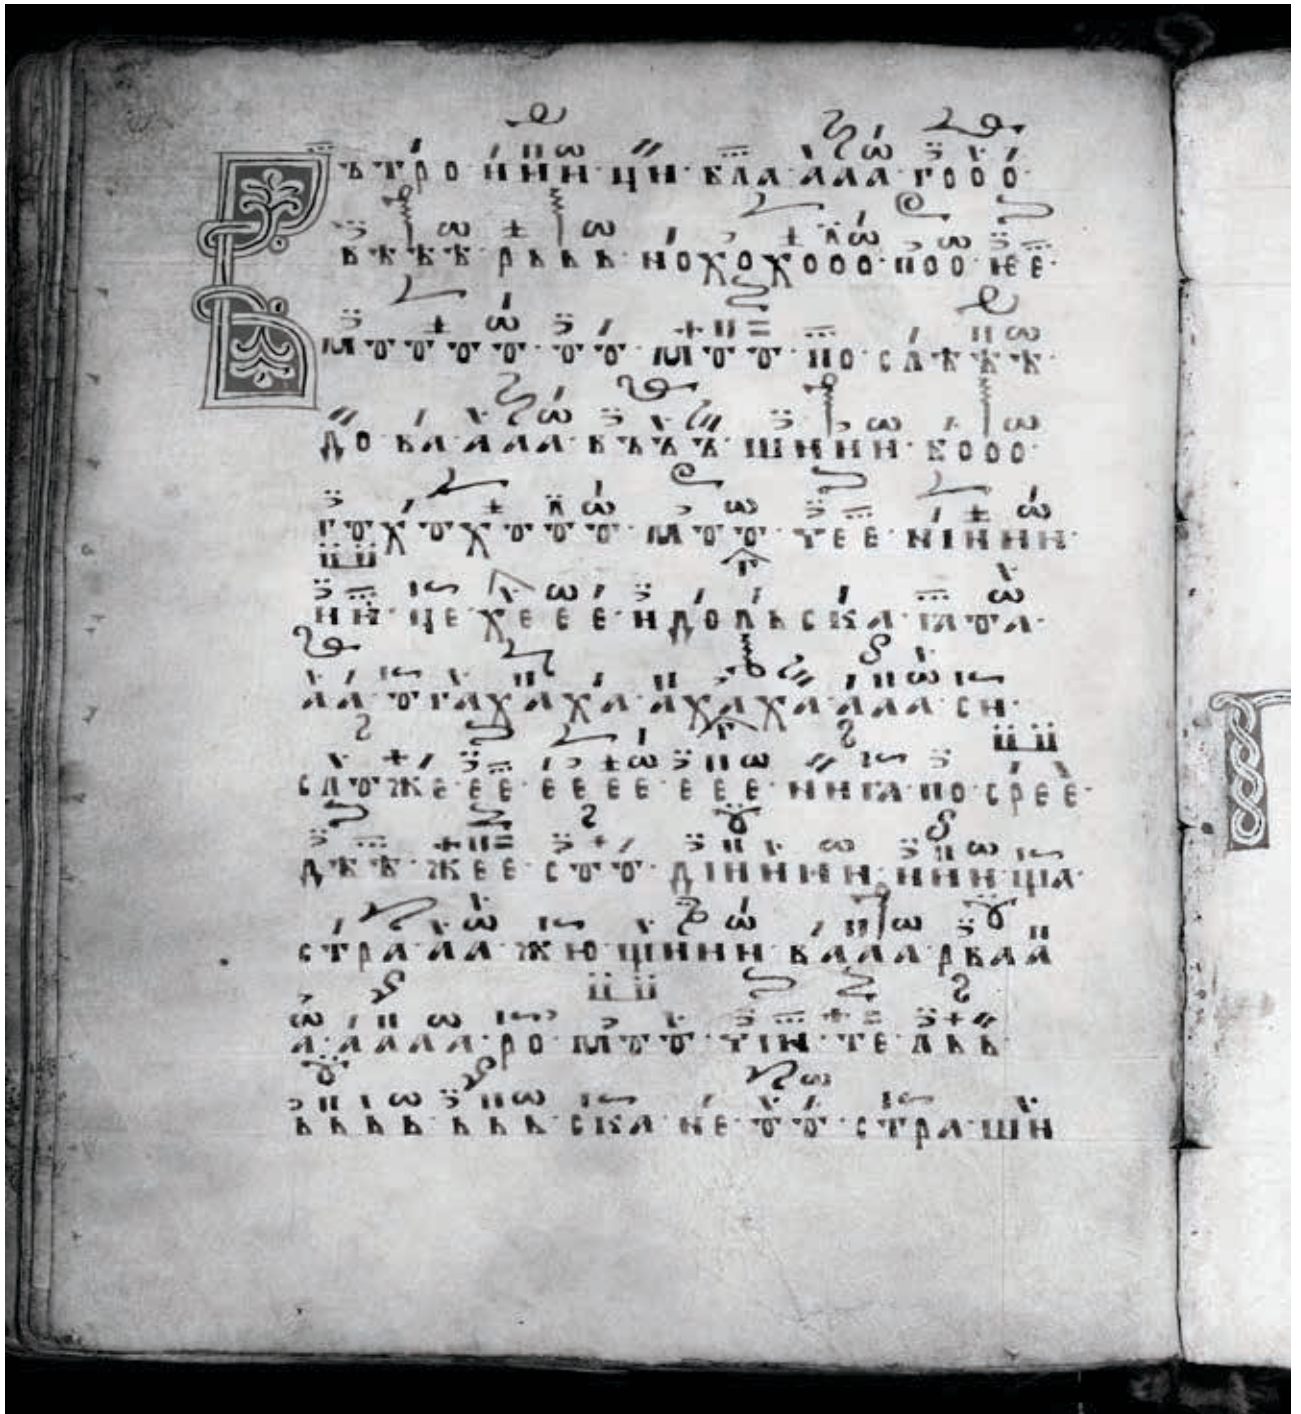 Въ тро иии ци бла ааа гооо
вѣѣѣ рььь но хо хооо поо нее
моооо оо моо по слѣѣѣ
до ва ааа въъъ шиии кооо
го хо хооо моо тее ніиии
ии це хеее и до льска ıаоа
аа огахаха ахахааа си
сло жеее ееее еее ниıа по срее
дѣѣ жее сто діииии иии ща
стра аа жю щиии вааа рваа
аааа ро моо тіи те льь
ьььь ььь ска не оо стра ши